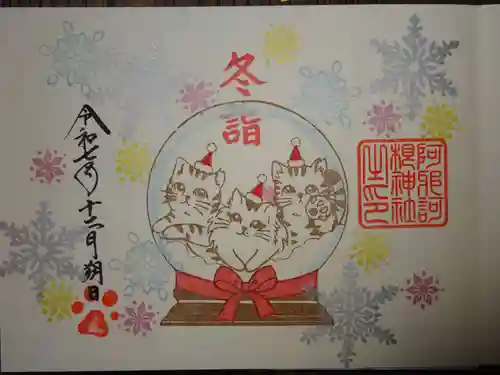 阿邪訶
根神社
之印
冬詣
令和七年十二月朔日